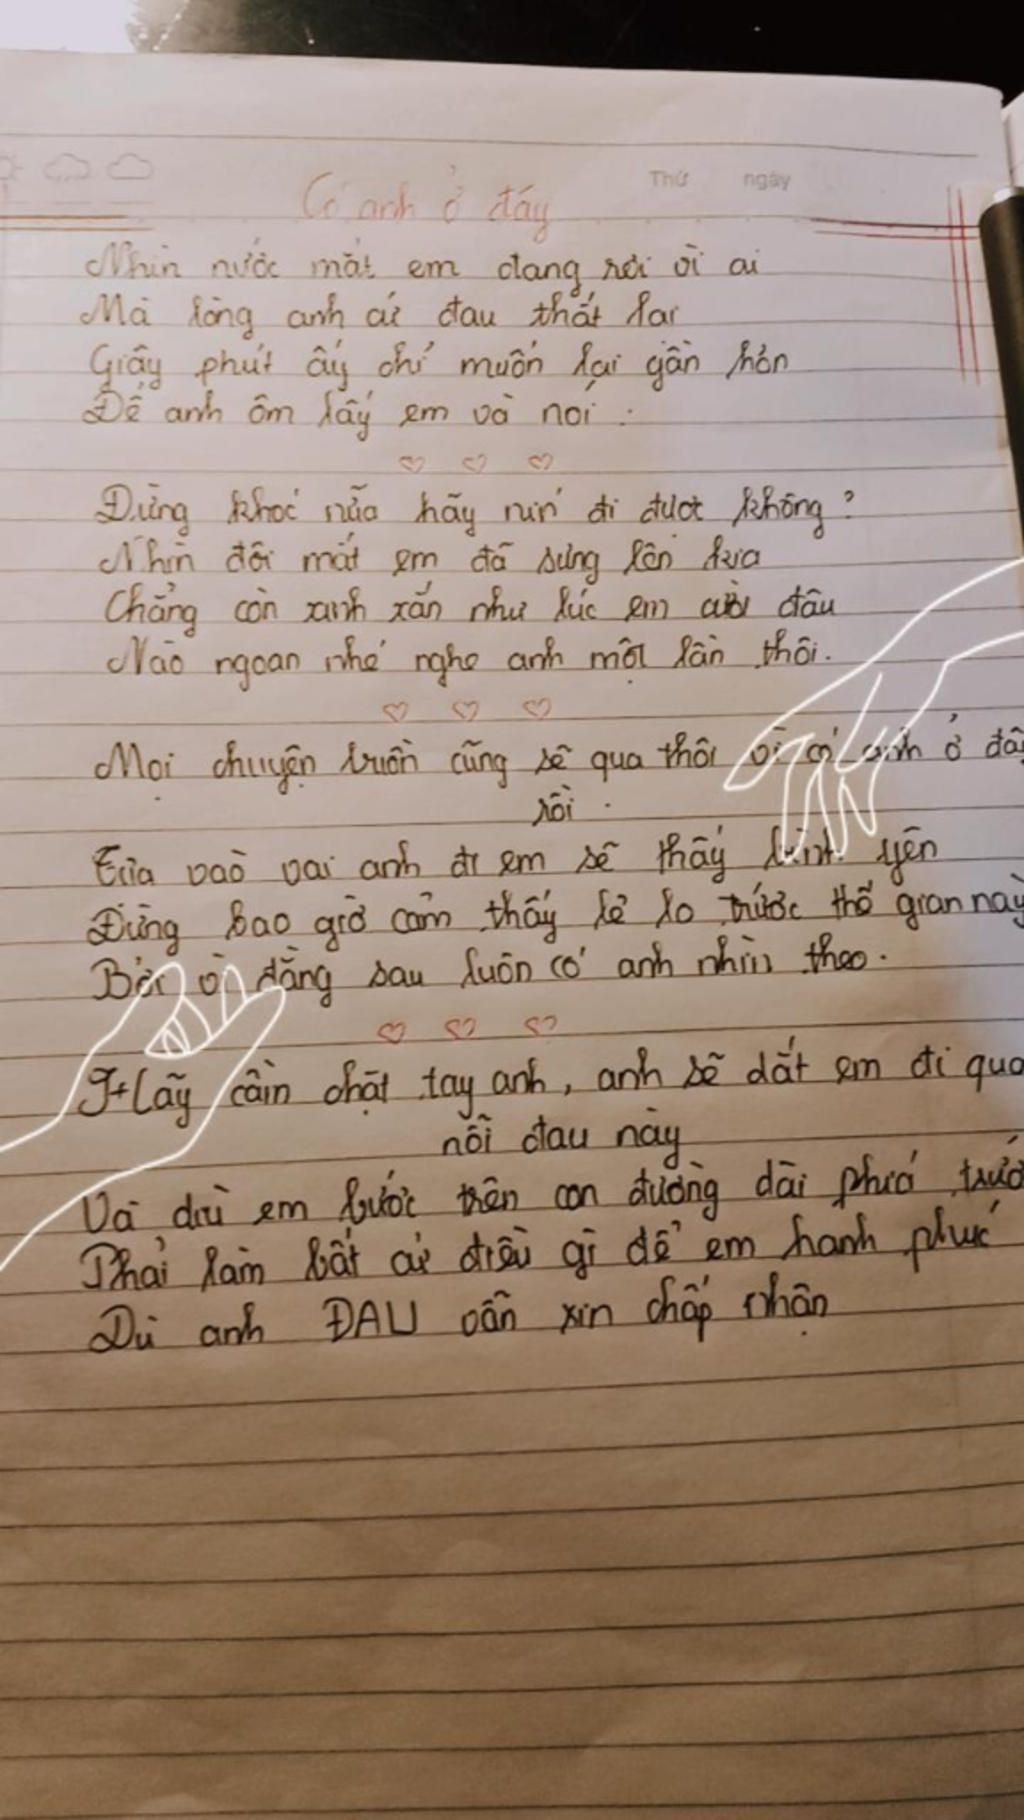 Thứ ngày
Có anh ở đây
Nhìn nước mắt em đang rơi vì ai
Mà lòng anh cứ đau thắt lại
Giây phút ấy chỉ muốn lại gần hơn
Để anh ôm lấy em và nói :
Đừng khóc nữa hãy nín đi được không ?
Nhìn đôi mắt em đã sưng lên kìa
Chẳng còn xinh xắn như lúc em cười đâu
Nào ngoan nhé nghe anh một lần thôi.
Mọi chuyện buồn cũng sẽ qua thôi vì có anh ở đây
rồi .
Tựa vào vai anh đi em sẽ thấy bình yên
Đừng bao giờ cảm thấy lẻ loi trước thế gian này
Bởi vì đằng sau luôn có anh nhìn theo.
Hãy cầm chặt tay anh, anh sẽ dắt em đi qua
nỗi đau này
Và dìu em bước trên con đường dài phía trước
Phải làm bất cứ điều gì để em hạnh phúc
Dù anh ĐAU vẫn xin chấp nhận